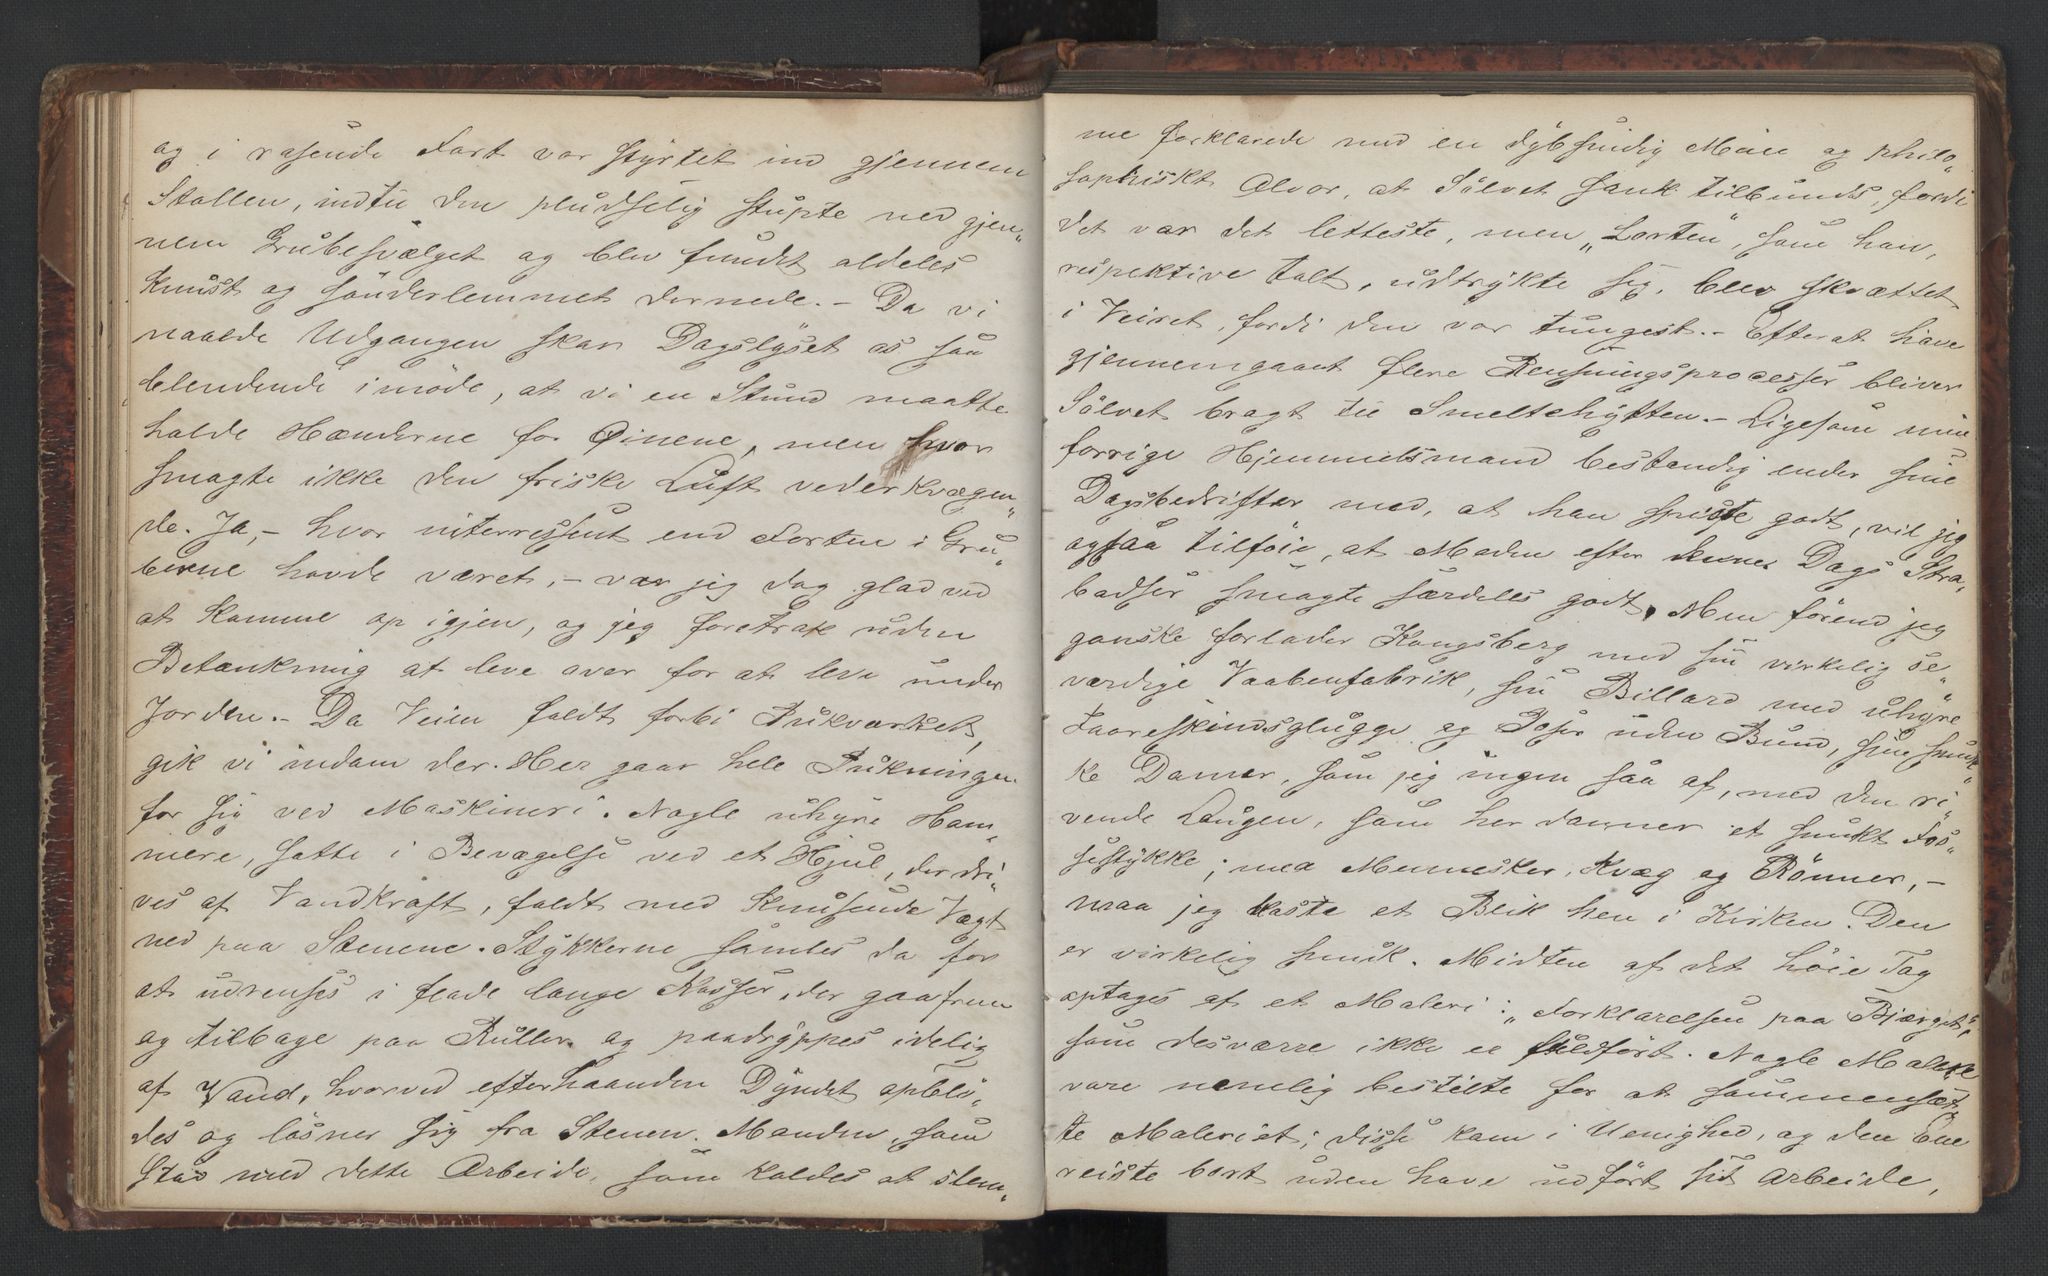 og i rasende Fart var styrtet ind gjennem
Stollen, indtil den pludselig stupte ned gjen„
nem Grubesvælget og blev fundet aldeles
knust og sønderlemmet dernede. – Da vi
naaede Udgangen skar Dagslyset os saa
blendende imøde, at vi en Stund maatte
holde Hænderne for Øinene, men hvor
smagte ikke den friske Luft vederkvægen„
de. Ja, – hvor interressent end Farten i Gru„
berne havde været, – var jeg dog glad ved
at komme op igjen, og jeg foretrak uden
Betænkning at leve over for at leve under
Jorden. – Da Veien faldt forbi Pukverket,
gik vi indom der. Her gaar hele Pukningen
for sig ved Maskineri. Nogle uhyre Ham„
mere, satte i Bevægelse ved et Hjul, der dri„
ves af Vandkraft, faldt med knusende Vægt
ned paa Stenene. Stykkerne samles da for
at udrenses i flade lange Kasser, der gaa frem
og tilbage paa Ruller og paadryppes idelig
af Vand, hvorved efterhaanden Dyndet opblö„
des og løsner sig fra Stenen. Manden, som
stod med dette Arbeide, som kaldes at slem„
me forklarede med en dybsindig Mine og philo„
sophiskt Alvor, at Sölvet sank tilbunds, fordi
det var det letteste, men „Lorten“, som han,
respektive talt, udtrykte sig, blev skvættet
i Veiret, fordi den var tungest. – Efter at have
gjennemgaaet flere Rensningsprocesser bliver
Sölvet bragt til Smeltehytten. – Ligesom min
forrige Hjemmelsmand bestandig ender sine
Dagsbedrifter med, at han spiste godt, vil jeg
ogsaa tilføie, at Maden efter denne Dags Stra„
badser smagte særdeles godt. Men førend jeg
ganske forlader Kongsberg med sin virkelig se„
værdige Vaabenfabrik, sin Billard med uhyre
Faareskindsglugge og Poser uden Bund, sine smuk„
ke Damer, som jeg ingen saa af, med den ri„
vende Laugen, som her danner et smukt Fos„
sestykke; med Mennesker, Kvæg og Rönner, –
maa jeg kaste et Blik hen i Kirken. Den
er virkelig smuk. Midten af det höie Tag
optages af et Maleri: „Forklarelsen paa Bjerget“,
som desværre ikke er fuldført. Nogle Malere
vare nemlig bestilte for at sammensæt„
te Maleriet; disse kom i Uenighed, og den Ene
reiste bort uden have udført sit Arbeide,